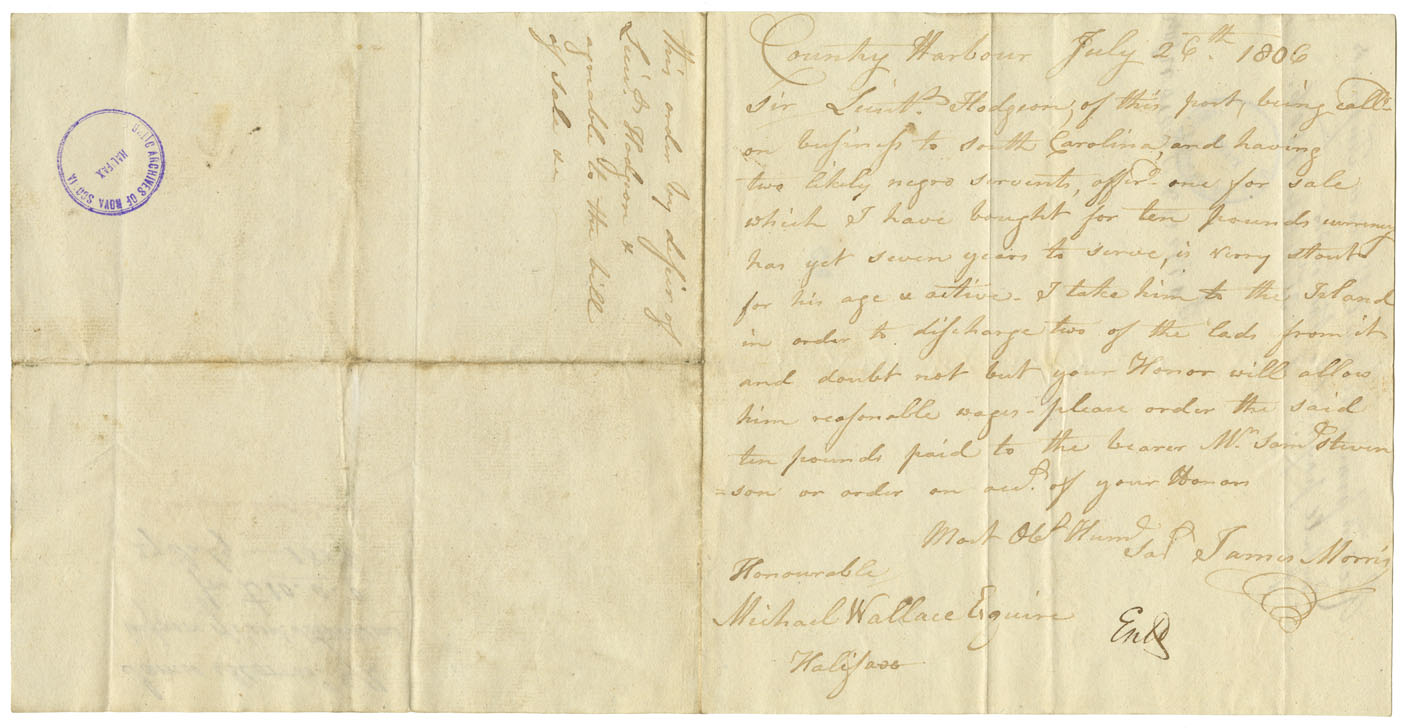 this order by desier of
Lieut. Hodgson is
agreable to the bill
of sale
PUBLIC ARCHIVES OF NOVA SCOTIA
HALIFAX
Country Harbour July 26th. 1806
Sir Lieut. Hodgson, of this port, being call
on business to south Carolina, and having
two likely negro servents, offerd one for sale
which I have bought for ten pounds currency
has yet seven years to serve, is verry stout
for his age & active - I take him to the Island
in order to discharge two of the lads from it
and doubt not but your Honor will allow
him reasonable wages - please order the said
ten pounds paid to the bearer Mr. Saml Steven
=son or order on acct. of your Honors
Most Obt. Huml
Sert James Morris
Honourable
Michael Wallace Esquire
Entd
Halifax